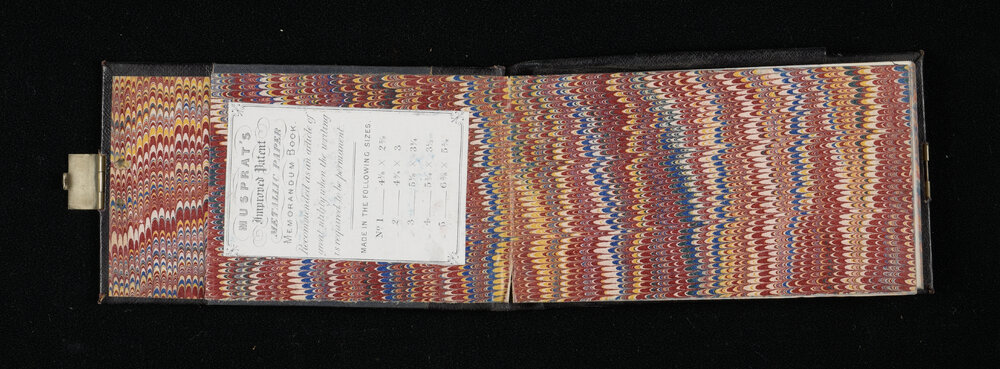 MUSPRAT'S
Improved Patent
METALLIC PAPER
MEMORANDUM BOOK
Recommended as an article of
great utility when the writing
is required to be permanent.
MADE IN THE FOLLOWING SIZES.
No 1 — 4⅜ × 2⅝
2 — 4¾ × 3
3 5⅛ × 3¼
4
5